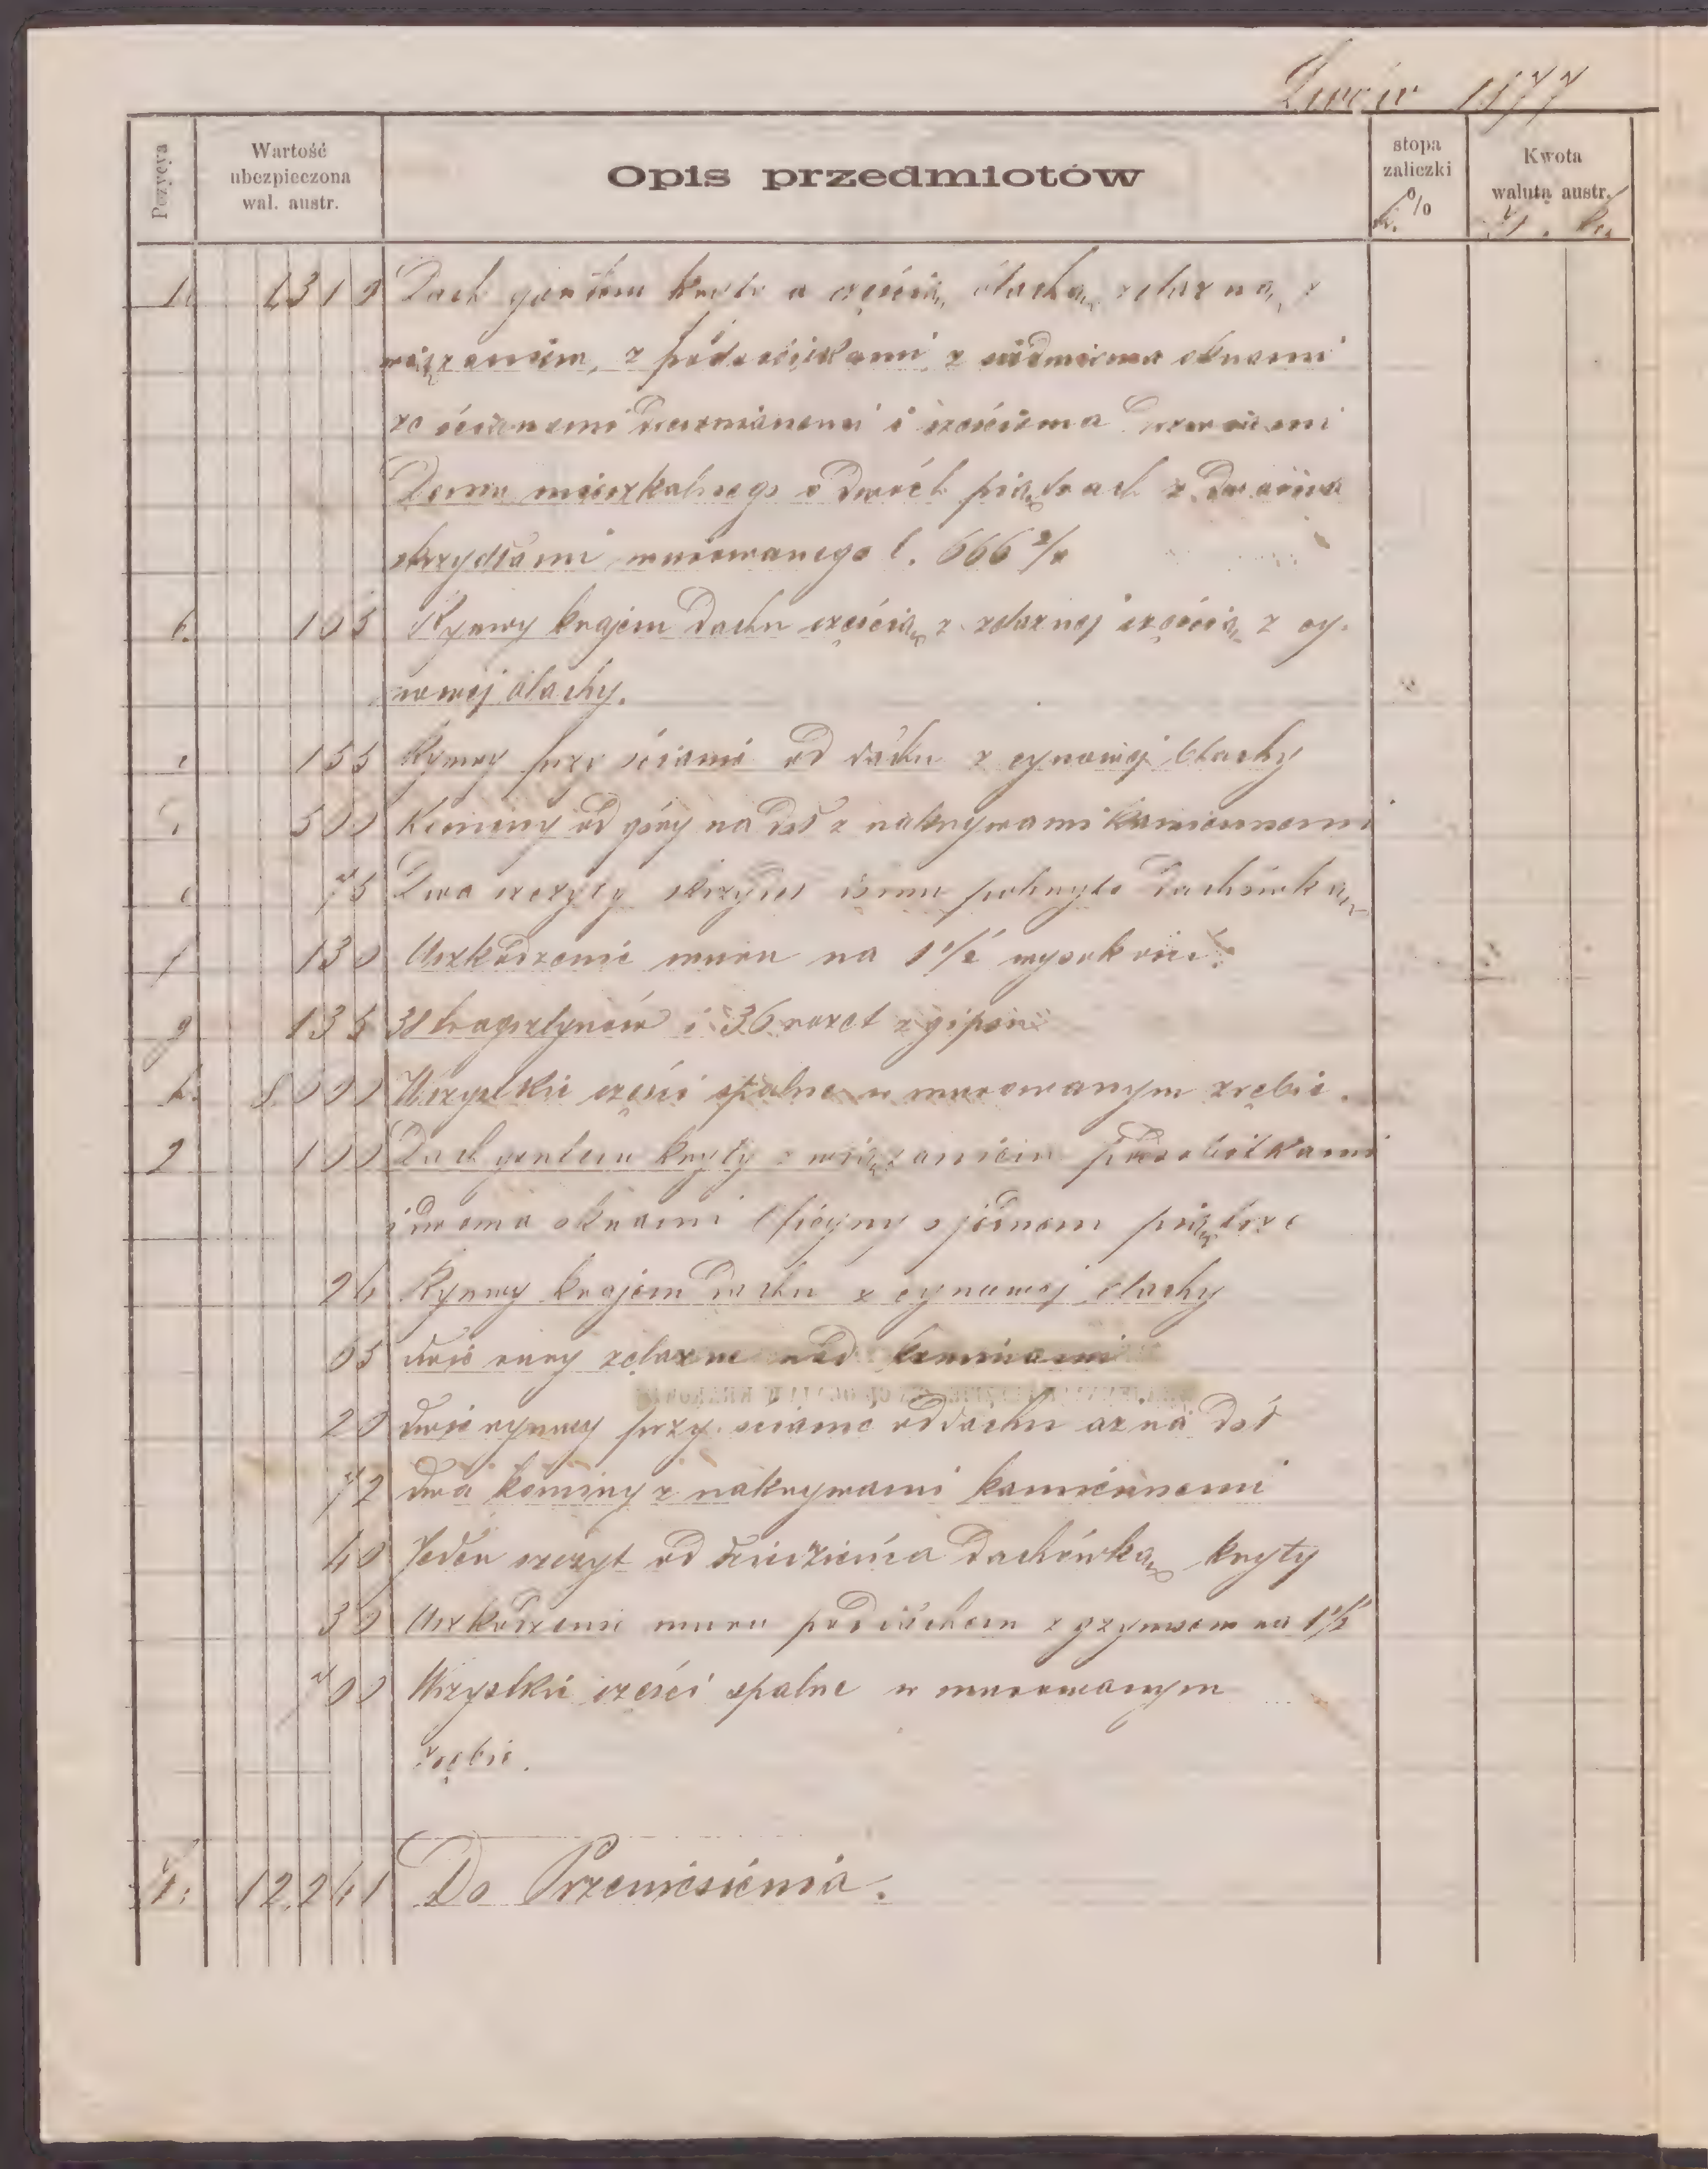 Lwów 1877
Pozycya
Wartość
ubezpieczona
wal. austr.
Opis przedmiotów
stopa
zaliczki
%
Kwota
walutą austr.
1. 1310 Dach gontem kryty a częścią blachą żelazną, z
wiązaniem, z podsobitkami, z siedmioma oknami
ze ścianami drewnianemi i sześcioma drzwiami
Domu mieszkalnego o dwóch piątrach z dwoma
skrzydłami murowanego l. 666 2/4
b. 105 Rynwy krajem dachu częścią z żelaznej częścią z cy-
nowej blachy.
c 155 Rynwy przy ścianie od dachu z cynowej blachy
d 500 Kominy od góry na dół z nakrywami kamiennemi
e 75 Dwa szczyty skrzydeł domu pokryte dachówką
f 130 Uszkodzenie muru na 1 1/2 wysokości
g 135 38 tragsztynów i 36 rozet z gipsu
h. 8.000 Wszystkie części spalne w murowanym zrębie.
2 100 Dach gontem kryty z wiązaniem podsobitkami
i dwoma oknami Oficyny o jednem piątrze
24 Rynwy krajem dachu z cynowej blachy
65 dwie rury żelazne nad kominami
20 dwie rynwy przy ścianie od dachu aż na dół
72 dwa kominy z nakrywami kamiennemi
40 Jeden szczyt od dziedzińca dachówką kryty
30 Uszkodzenie muru pod dachem z gzymsem na 1 1/2
700 Wszystkie części spalne w murowanym
zrębie.
12.241 Do Przeniesienia.